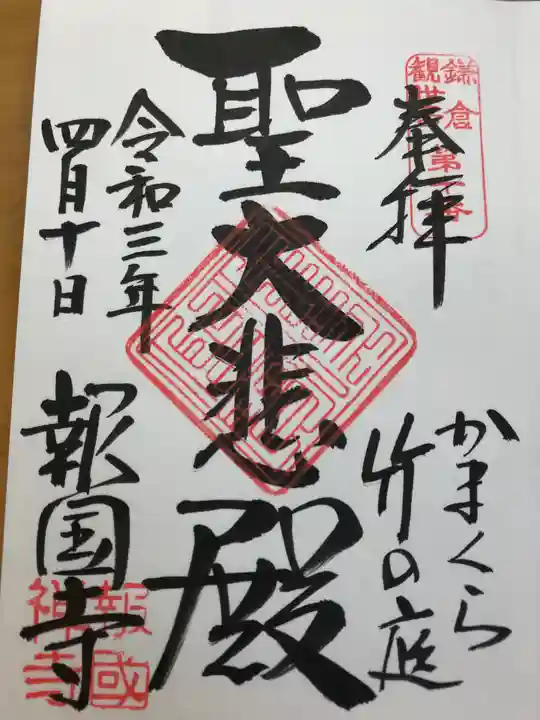 奉拝
かまくら
竹の庭
聖大悲殿
令和三年
四月十日
報国寺
鎌倉
観世
報國
禅寺